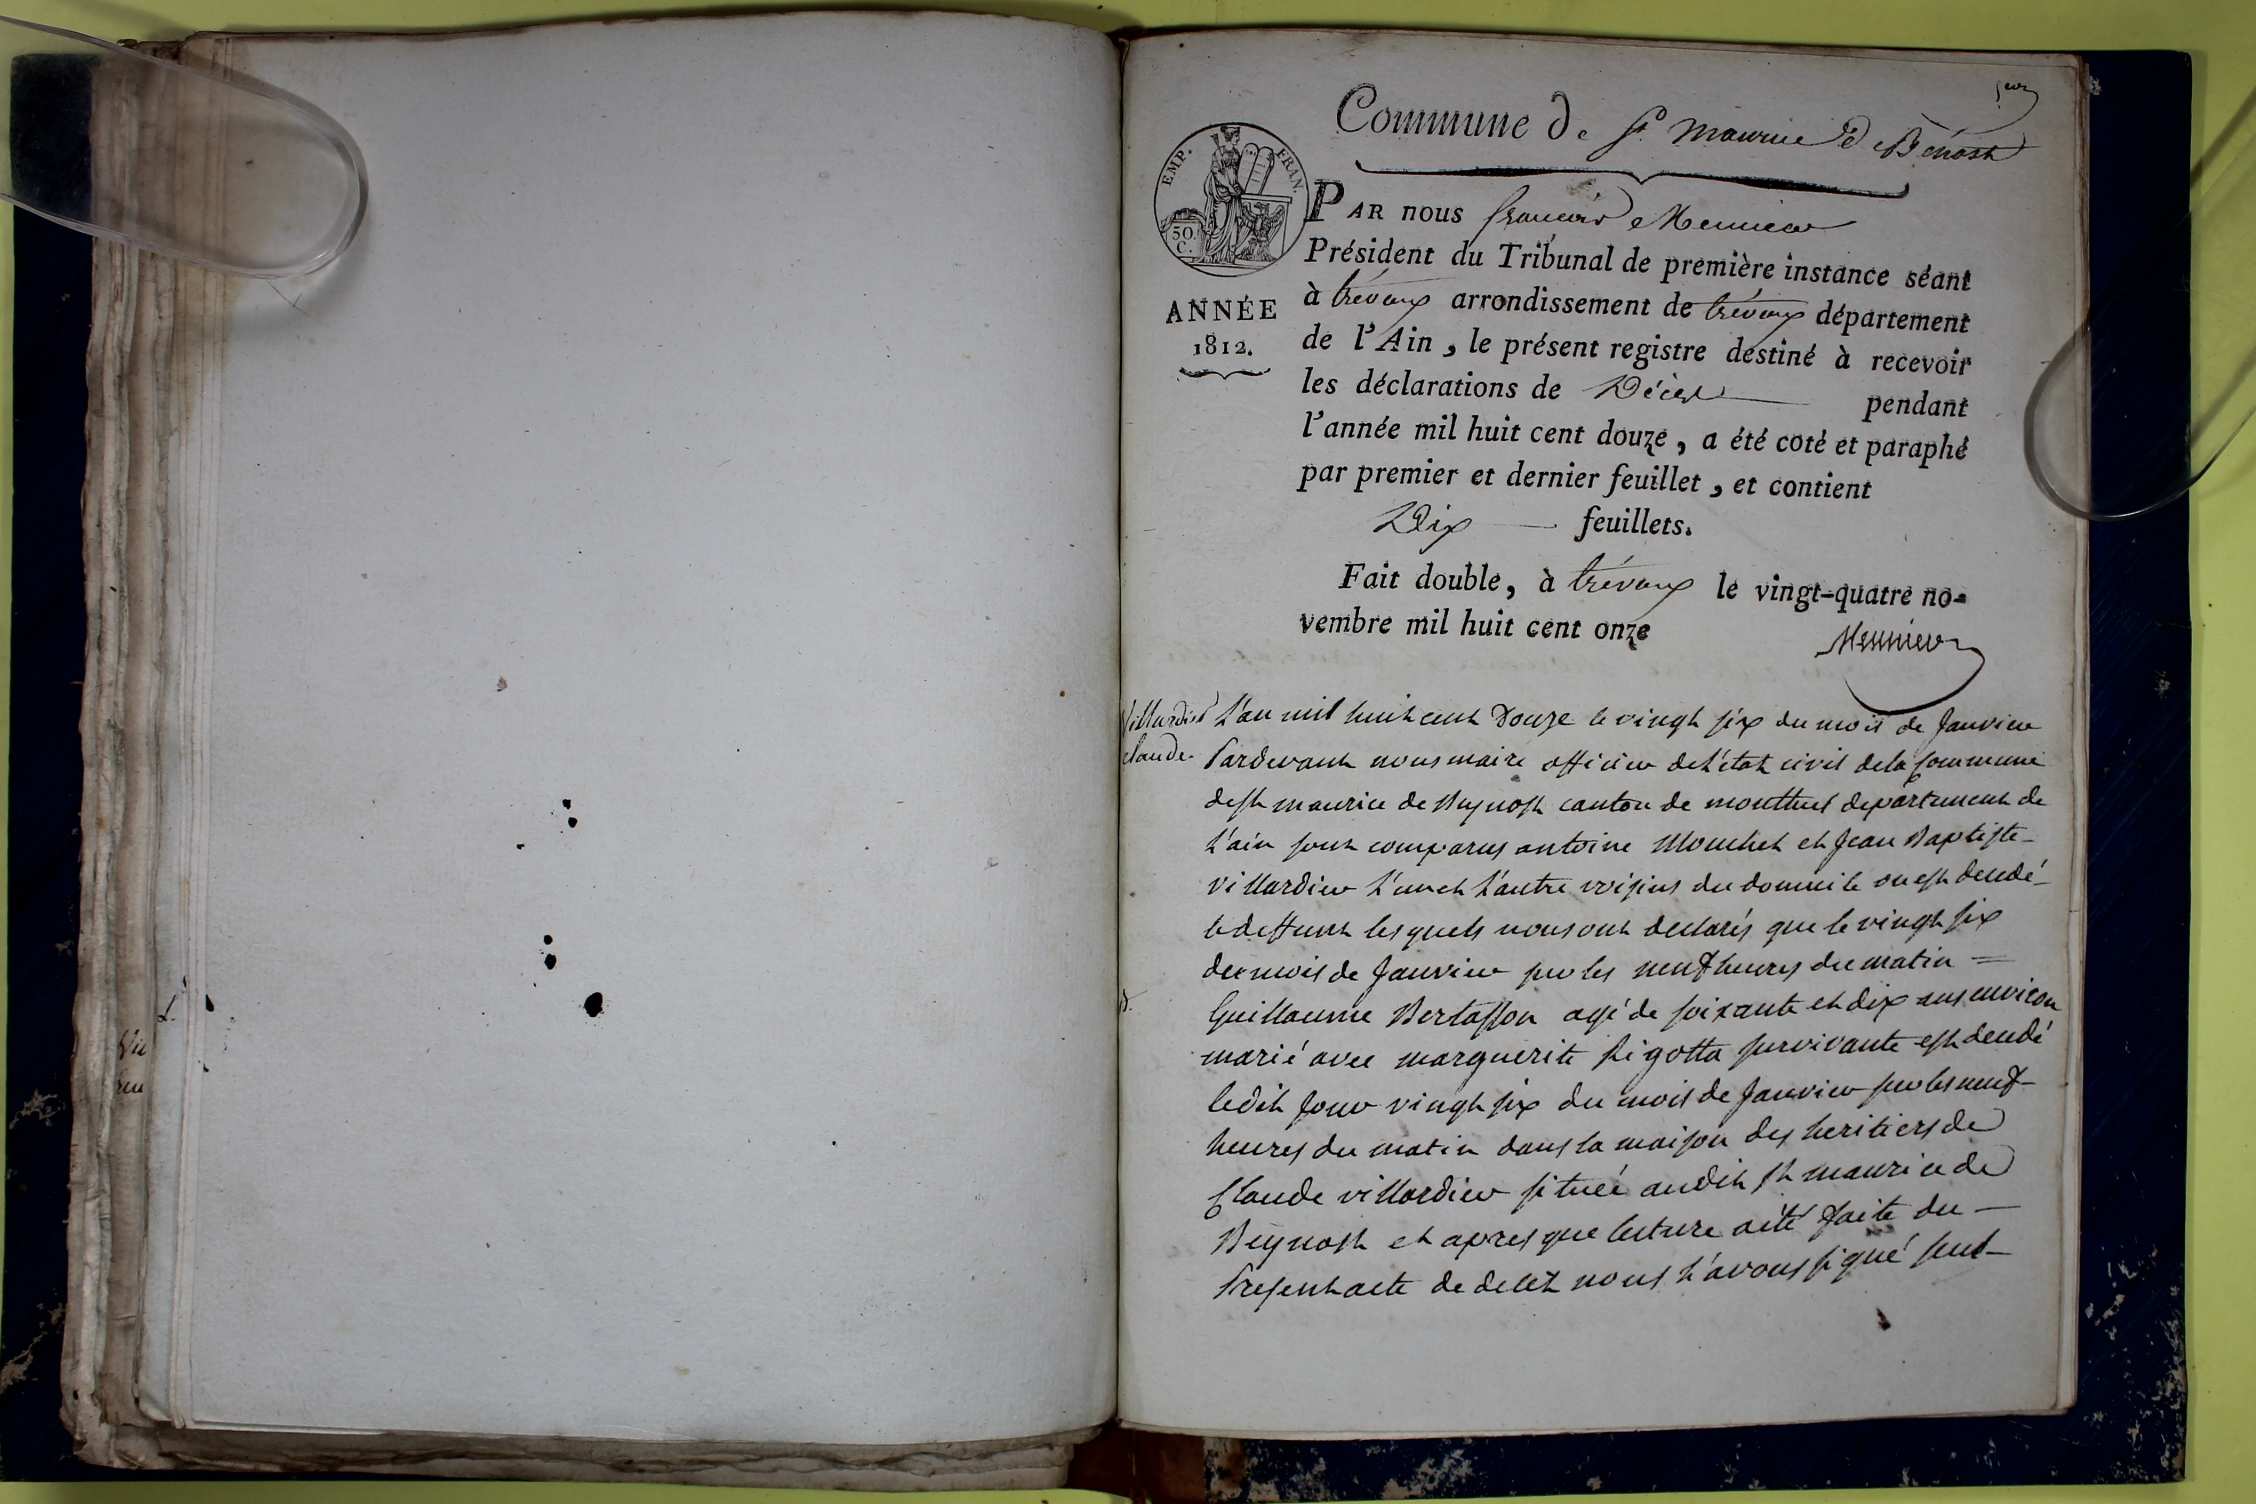 1er
Commune de St Maurice de Bénost
EMP. FRAN.
50.
C.
ANNÉE
1812.
PAR nous françois Mennier
Président du Tribunal de première instance séant
à trévoux arrondissement de trévoux département
de l'Ain, le présent registre destiné à recevoir
les déclarations de Décès pendant
l'année mil huit cent douze, a été coté et paraphé
par premier et dernier feuillet, et contient
Dix feuillets.
Fait double, à trévoux le vingt-quatre no-
vembre mil huit cent onze
Mennier
claude
L'an mil huit cent Douze le vingt six du mois de Janvier
Pardevant nous maire officier de l'état civil de la Commune
de st maurice de Beynost canton de montluel departement de
l'ain sont comparus antoine Mouchet et Jean Baptiste
villardier l'un et l'autre voisins du domicile ou est decedé
le deffunt lesquels nous ont declarés que le vingt six
du mois de Janvier sur les neuf heures du matin =
Guillaume Bertasson agé de soixante et dix ans environ
marié avec marguerite Rigotta survivante est decedé
ledit Jour vingt six du mois de Janvier sur les neuf
heures du matin dans la maison des heritiers de
Claude villardier située audit st maurice de
Beynost et apres que lecture a été faite du
Present acte de decét nous l'avons signé seul